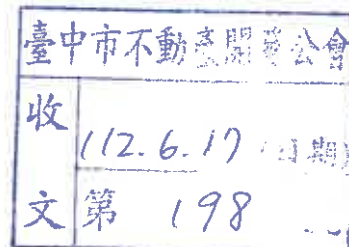 臺中市不動產開發公會
收
112.6.17(日期)
文
第 198